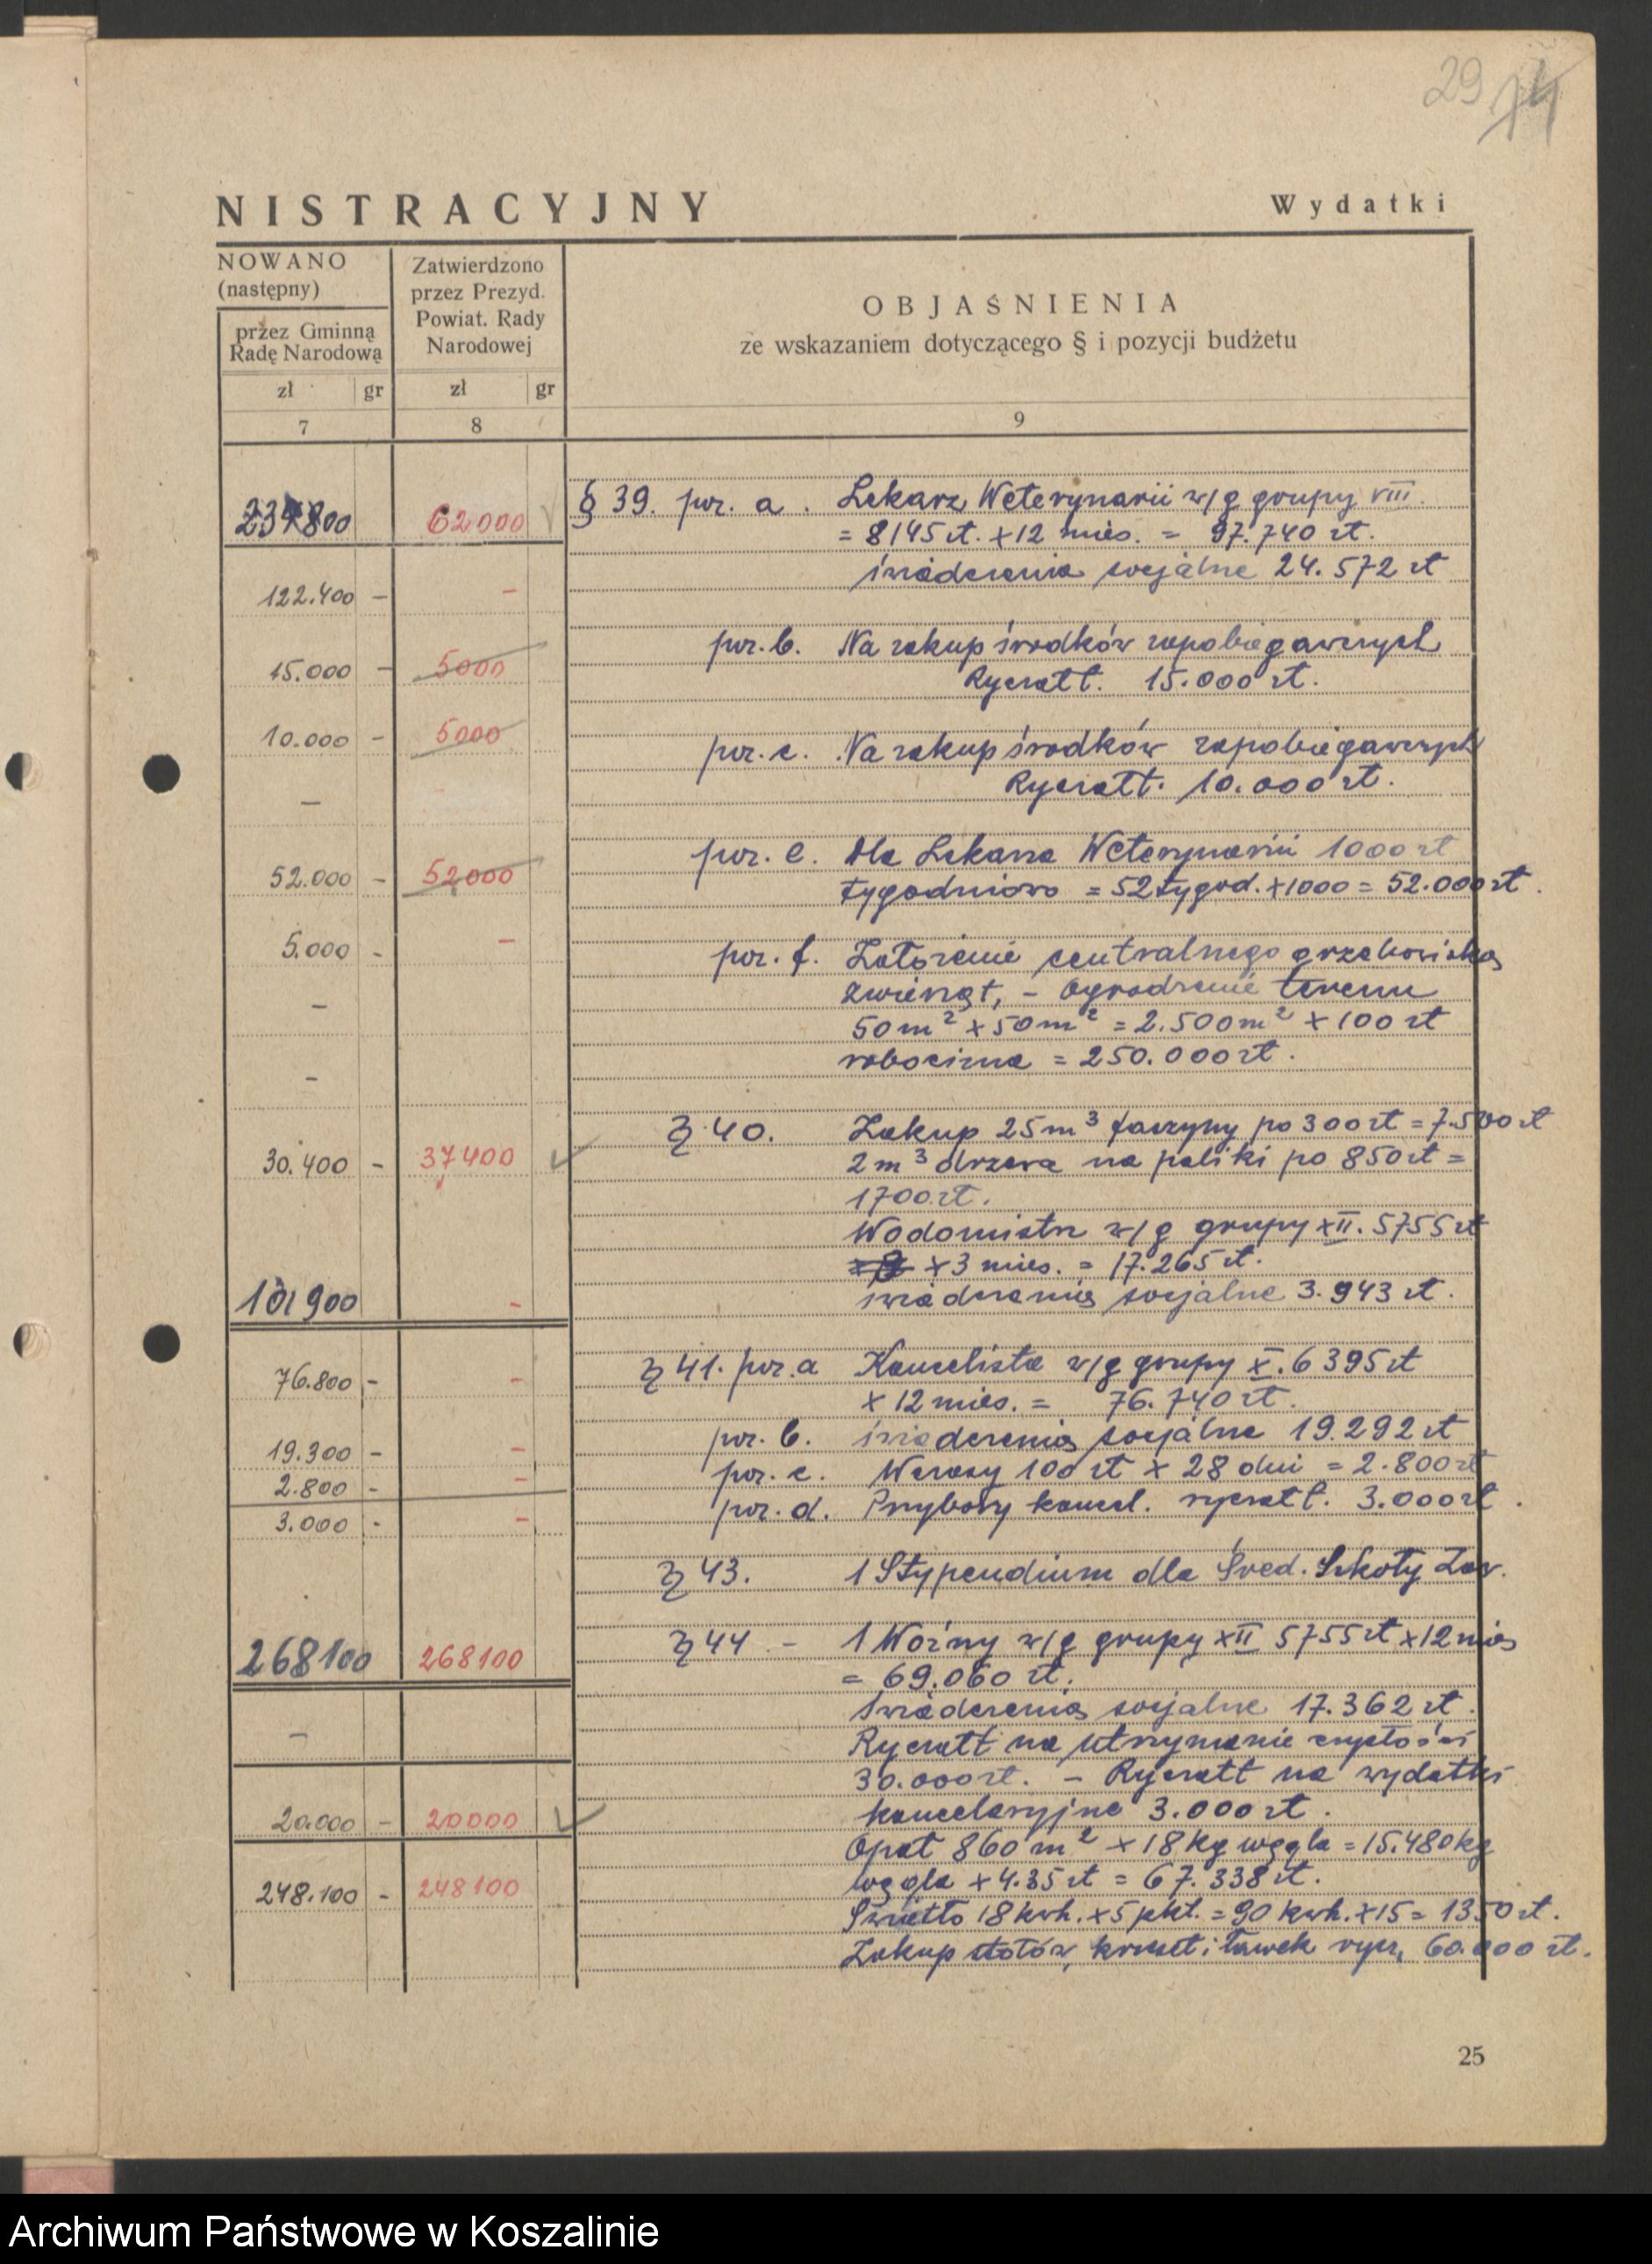 29 14
NISTRACYJNY Wydatki
NOWANO
(następny)
przez Gminną
Radę Narodową
zł gr
7
Zatwierdzono
przez Prezyd.
Powiat. Rady
Narodowej
zł gr
8
OBJAŚNIENIA
ze wskazaniem dotyczącego § i pozycji budżetu
9
62000
122.400 - -
15.000 - 5000
10.000 - 5000
-
52.000 - 52000
5.000 - -
-
-
30.400 - 37400
101900 -
76.800 - -
19.300 - -
2.800 - -
3.000 - -
268100 268100
-
20.000 - 20000
248.100 - 248100
§ 39. poz. a. Lekarz Weterynarii w/g grupy VIII.
= 8145 zł. x 12 mies. = 97.740 zł.
świadczenia socjalne 24.572 zł
poz. b. Na zakup środków zapobiegawczych
Ryczałt. 15.000 zł.
poz. c. Na zakup środków zapobiegawczych
Ryczałt. 10.000 zł.
poz. e. Dla Lekarza Weterynarii 1000 zł
tygodniowo = 52 tygod. x 1000 = 52.000 zł.
poz. f. Założenie centralnego grzebowiska
zwierząt, - Ogrodzenie terenu
50 m² x 50 m² = 2.500 m² x 100 zł
robocizna = 250.000 zł.
§ 40. Zakup 25 m³ faszyny po 300 zł = 7.500 zł
2 m³ drzewa na paliki po 850 zł =
1700 zł.
Wodomistrz w/g grupy XII. 5755 zł
x 3 mies. = 17.265 zł.
świadczenia socjalne 3.943 zł.
§ 41. poz. a Kancelista w/g grupy X. 6395 zł
x 12 mies. = 76.740 zł.
poz. b. świadczenia socjalne 19.292 zł
poz. c. Wczasy 100 zł x 28 dni = 2.800 zł
poz. d. Przybory kancel. ryczałt. 3.000 zł.
§ 43. 1 Stypendium dla Śred. Szkoły Zaw.
§ 44 - 1 Woźny w/g grupy XII 5755 zł x 12 mies
= 69.060 zł.
Świadczenia socjalne 17.362 zł.
Ryczałt na utrzymanie czystości
30.000 zł. - Ryczałt na wydatki
kancelaryjne 3.000 zł.
Opał 860 m² x 18 kg węgla = 15.480 kg
węgla x 4.35 zł = 67.338 zł.
Światło 18 kwh. x 5 pkt. = 90 kwh. x 15 = 1350 zł.
Zakup stołów, krzeseł i ławek rycz. 60.000 zł.
25
Archiwum Państwowe w Koszalinie